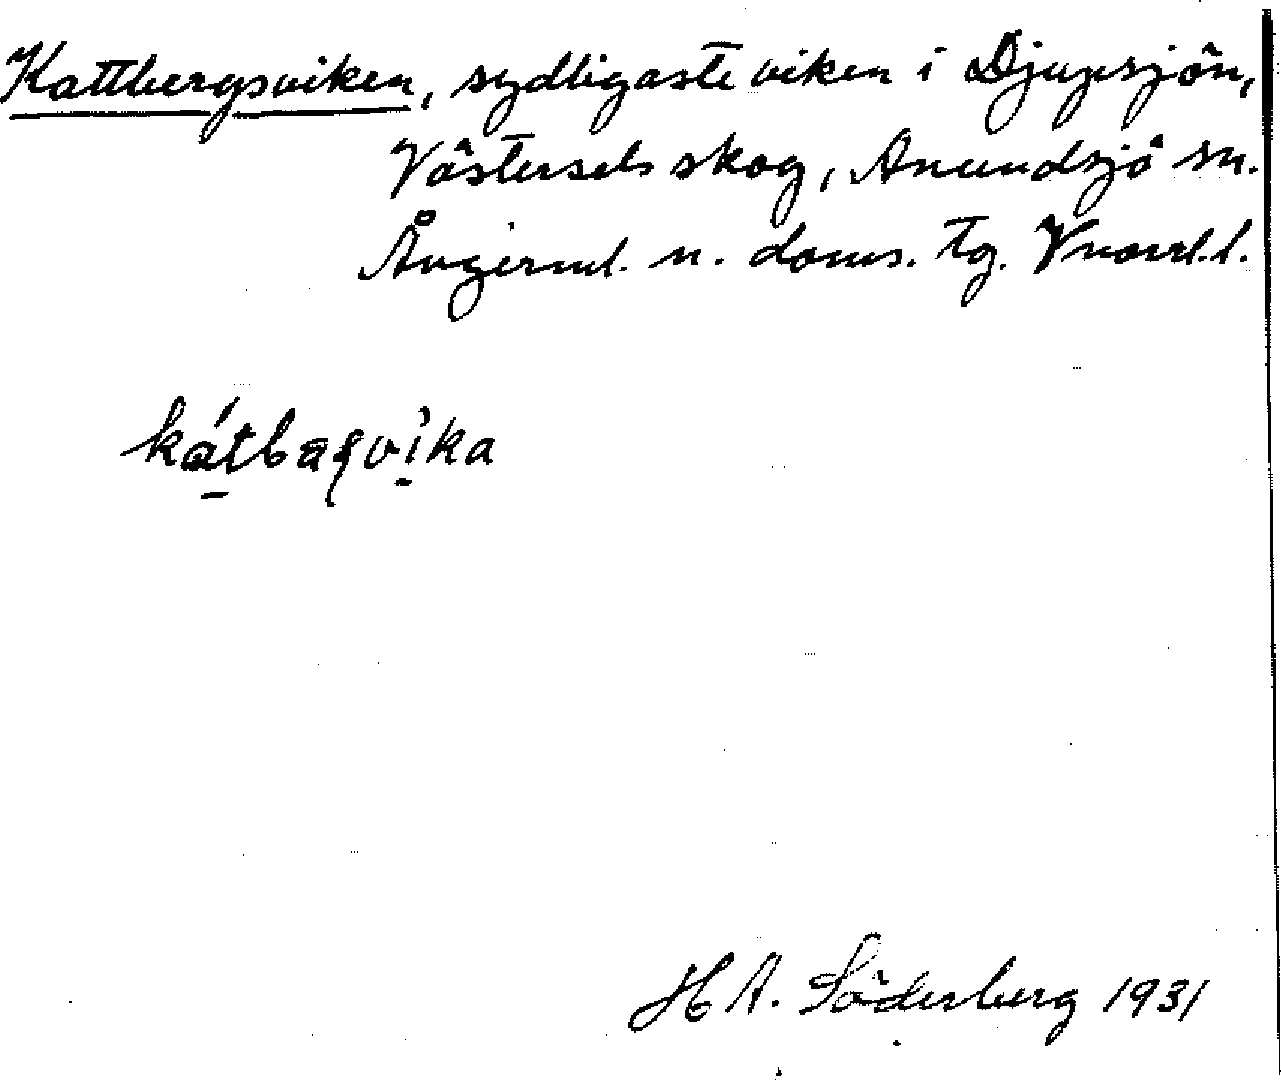 Kattbergsviken, sydligaste viken i Djupsjön,
Västersels skog, Anundsjö sn.
Ångerml. n. doms. tg. Vnorrl. l.
kátbaʂvìka
H A. Söderberg 1931